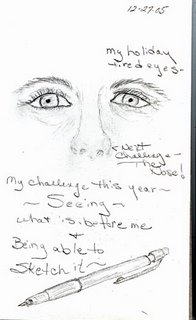 12-27-05
my holiday
tired eyes-
← Next
Challenge-
The
Nose!
My challenge this year~
~ Seeing ~
what is before me
+
Being able to
Sketch it~